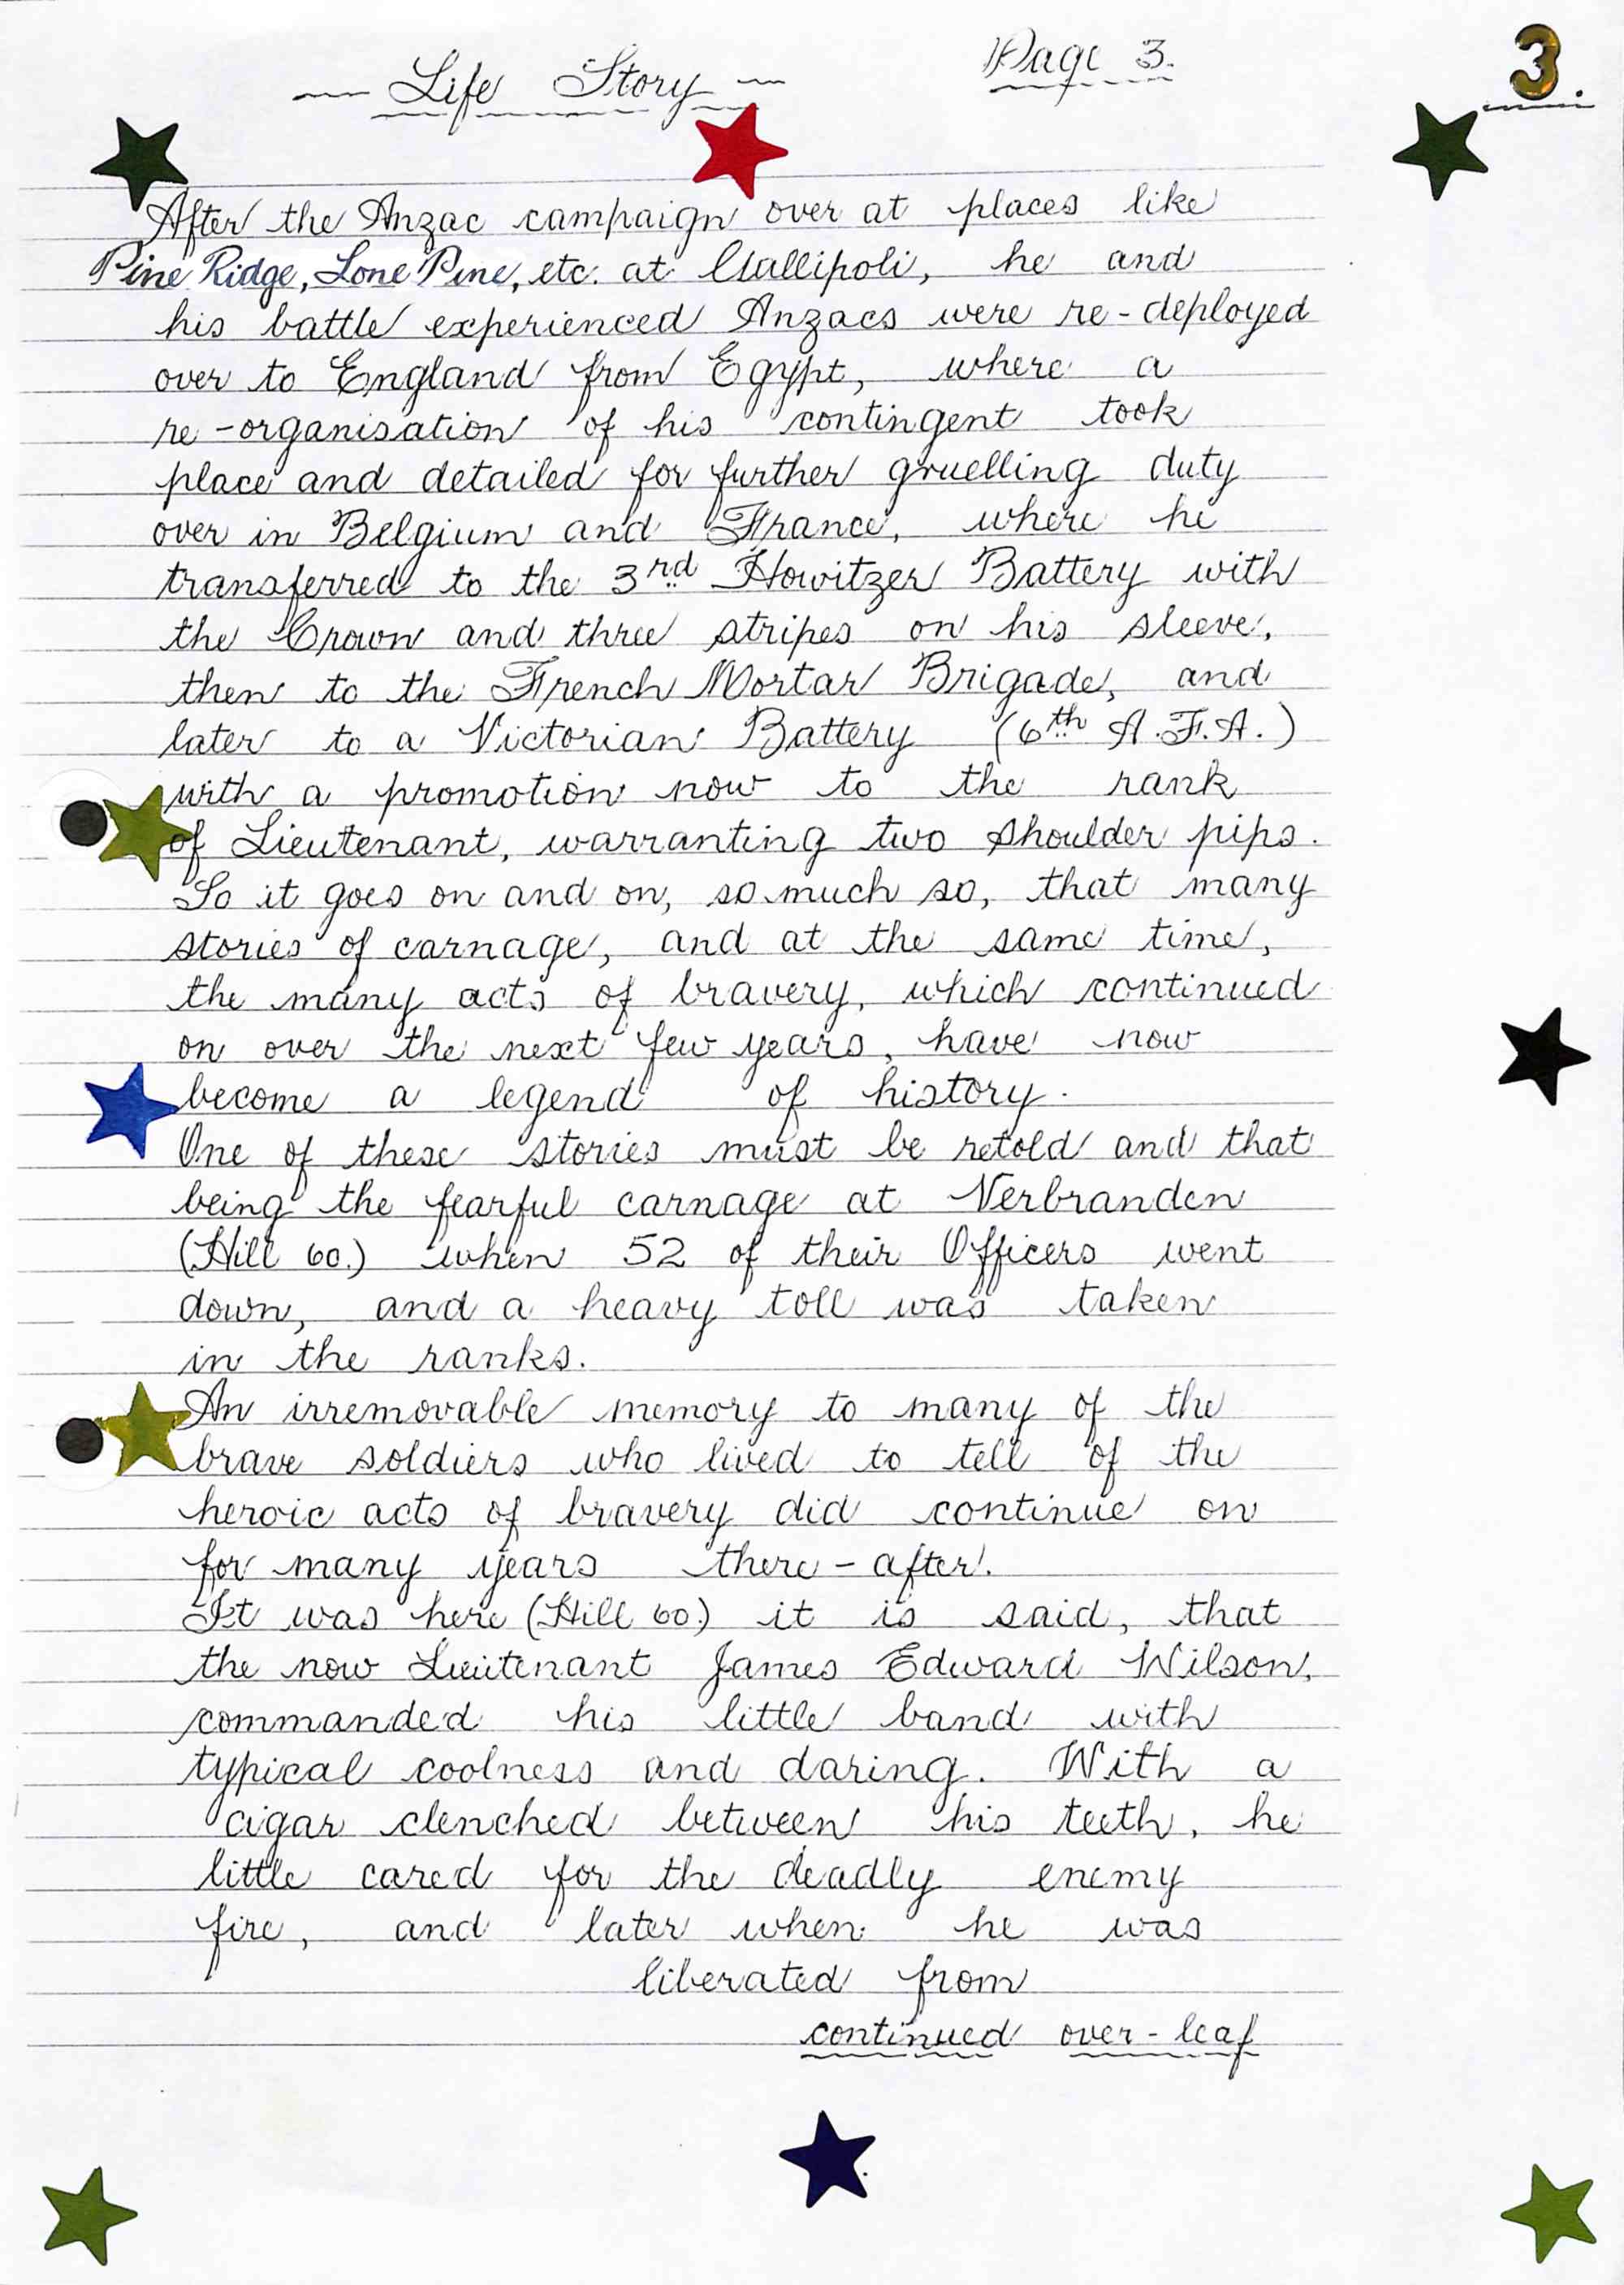 Life Story Page 3. 3.
After the Anzac campaign over at places like
Pine Ridge, Lone Pine, etc. at Gallipoli, he and
his battle experienced Anzacs were re-deployed
over to England from Egypt, where a
re-organisation of his contingent took
place and detailed for further gruelling duty
over in Belgium and France, where he
transferred to the 3rd Howitzer Battery with
the Crown and three stripes on his sleeve,
then to the French Mortar Brigade, and
later to a Victorian Battery (6th A.F.A.)
with a promotion now to the rank
of Lieutenant, warranting two shoulder pips.
So it goes on and on, so much so, that many
stories of carnage, and at the same time,
the many acts of bravery, which continued
on over the next few years, have now
become a legend of history.
One of these stories must be retold and that
being the fearful carnage at Verbranden
(Hill 60.) when 52 of their Officers went
down, and a heavy toll was taken
in the ranks.
An irremovable memory to many of the
brave soldiers who lived to tell of the
heroic acts of bravery did continue on
for many years there-after.
It was here (Hill 60.) it is said, that
the now Lieutenant James Edward Wilson,
commanded his little band with
typical coolness and daring. With a
cigar clenched between his teeth, he
little cared for the deadly enemy
fire, and later when he was
liberated from
continued over-leaf